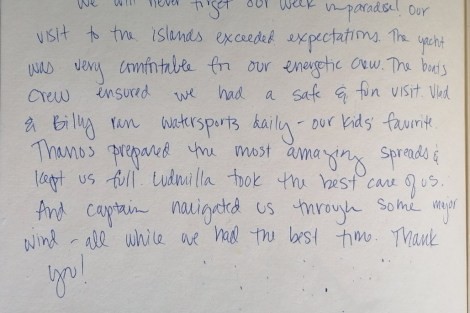 We will never forget our week in paradise! Our
visit to the islands exceeded expectations. The yacht
was very comfortable for our energetic crew. The boats
crew ensured we had a safe & fun visit. Vlad
& Billy ran watersports daily - our kids' favorite
Thanos prepared the most amazing spreads &
kept us full. Ludmilla took the best care of us.
And captain navigated us through some major
wind - all while we had the best time. Thank
you!